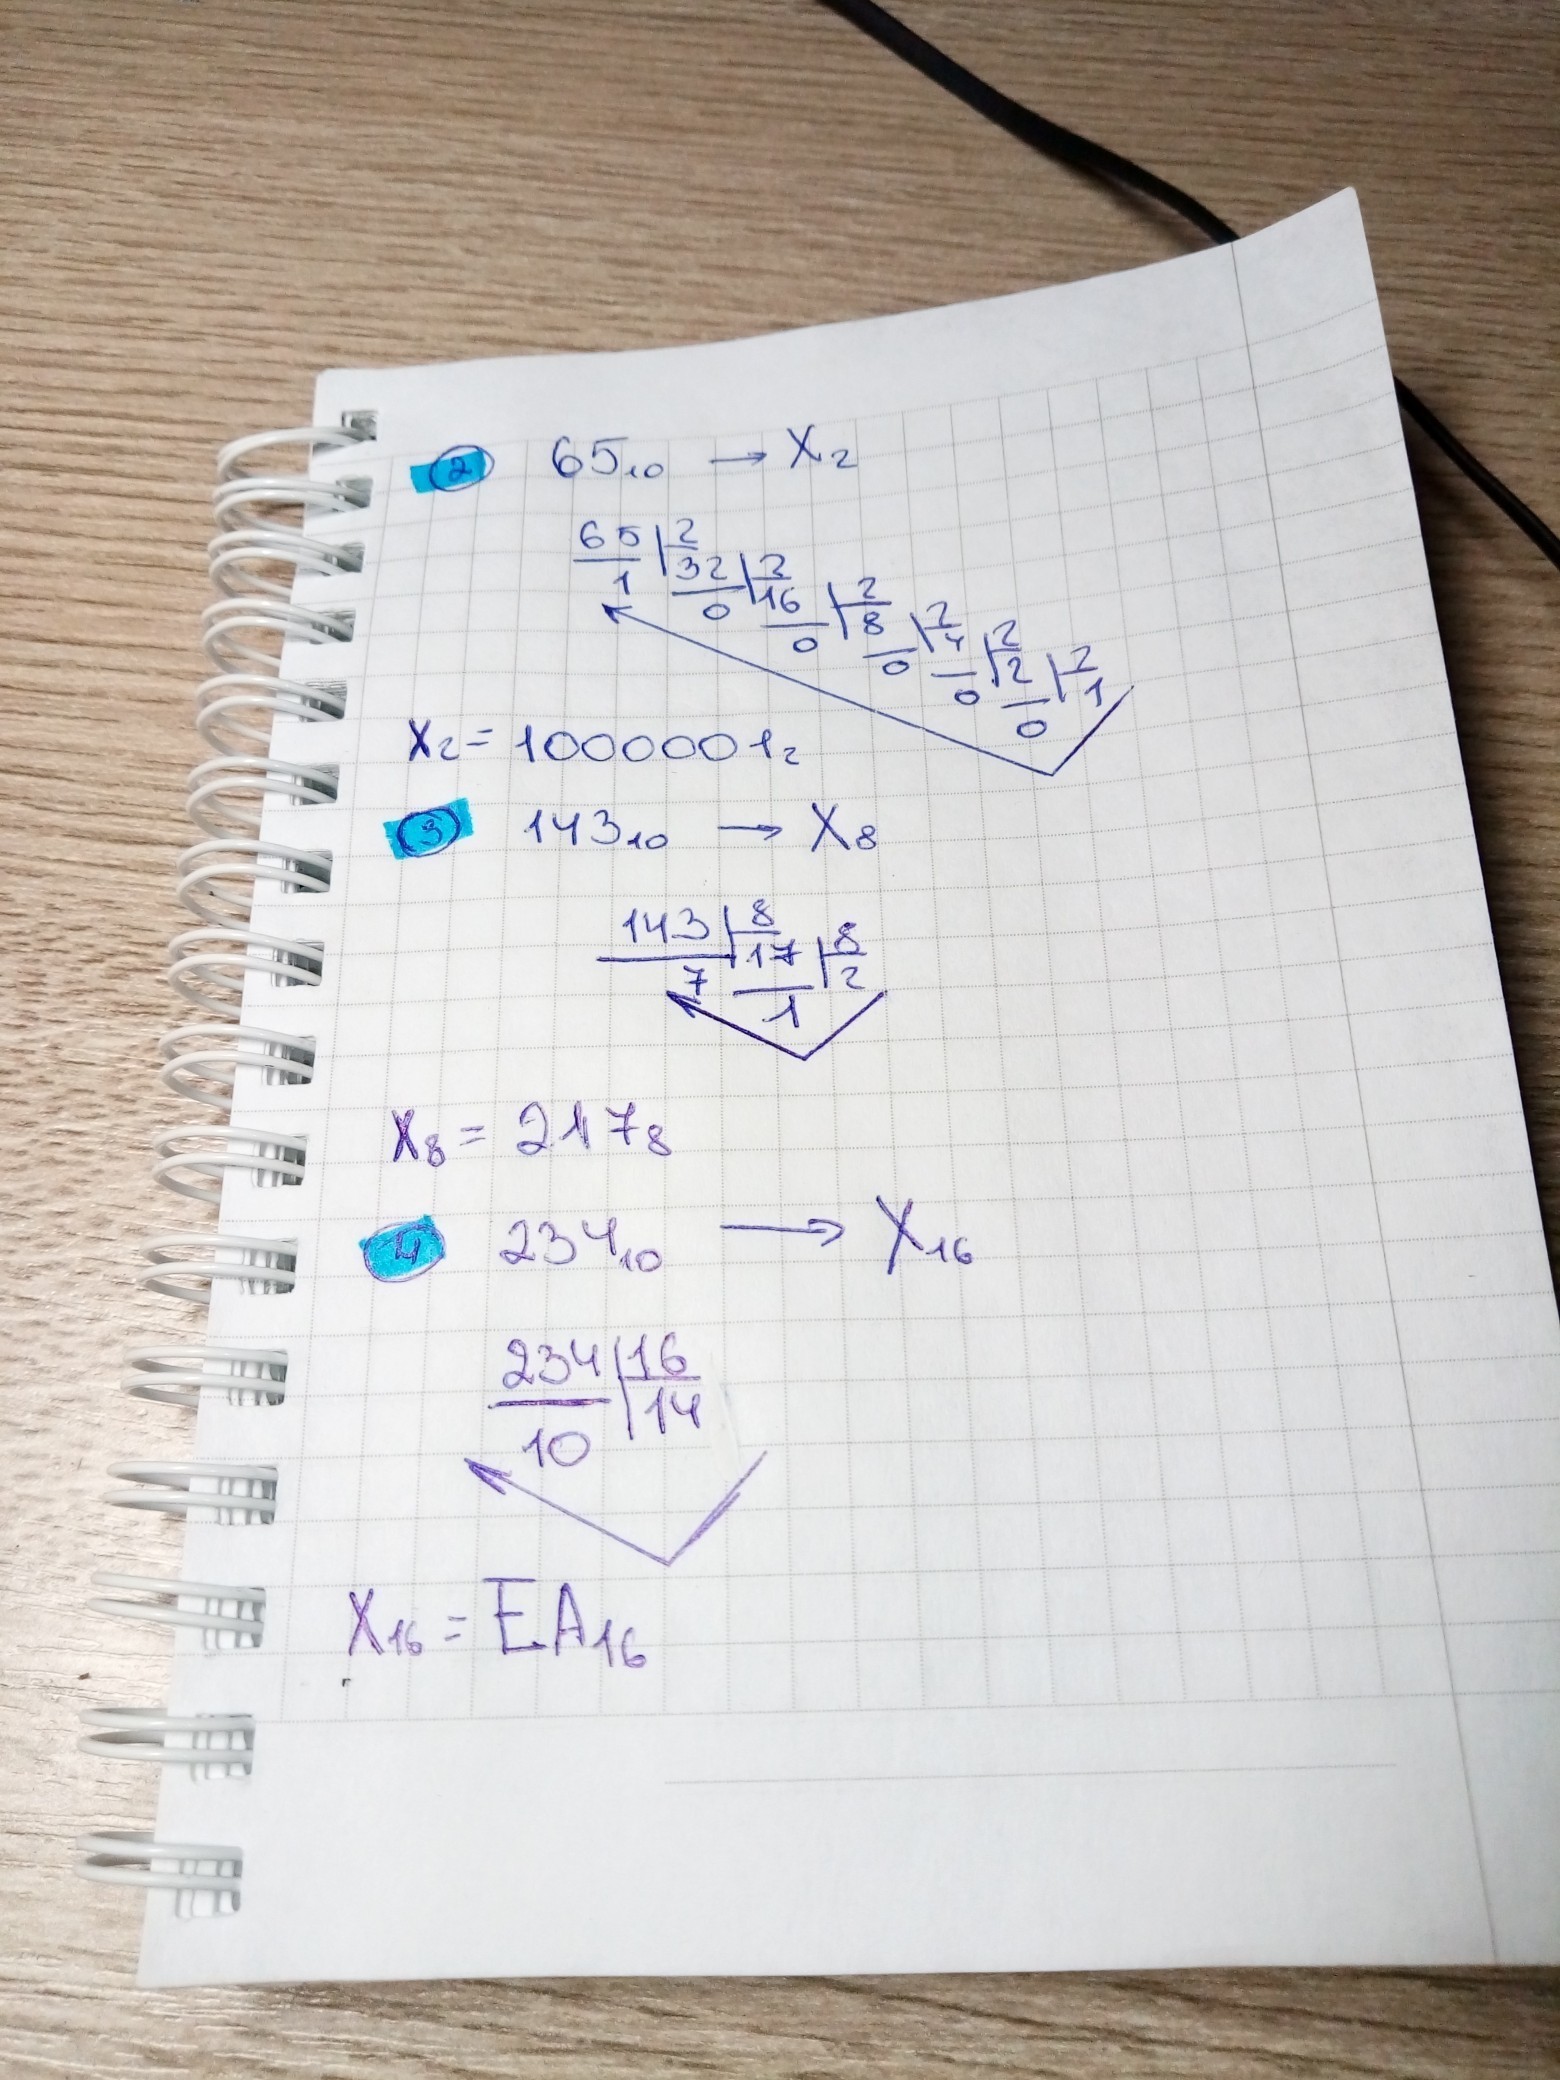 2 65₁₀ → X₂
65 | 2
1 32 | 2
0 16 | 2
0 8 | 2
0 4 | 2
0 2 | 2
0 1
X₂ = 1000001₂
3 143₁₀ → X₈
143 | 8
7 17 | 8
1 2
X₈ = 217₈
4 234₁₀ → X₁₆
234 | 16
10 14
X₁₆ = EA₁₆